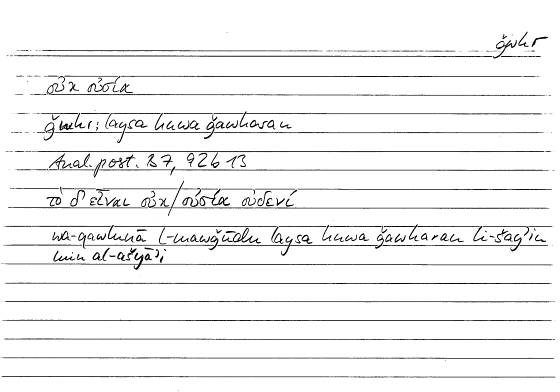 ǧwhr
οὐκ οὐσία
ǧwhr; laysa huwa ǧawharan
Anal. post. B 7, 92 b 13
τὸ δ' εἶναι οὐκ / οὐσία οὐδενί
wa-qawlunā l-mawǧūdu laysa huwa ǧawharan li-šayʾin
min al-ašyāʾi